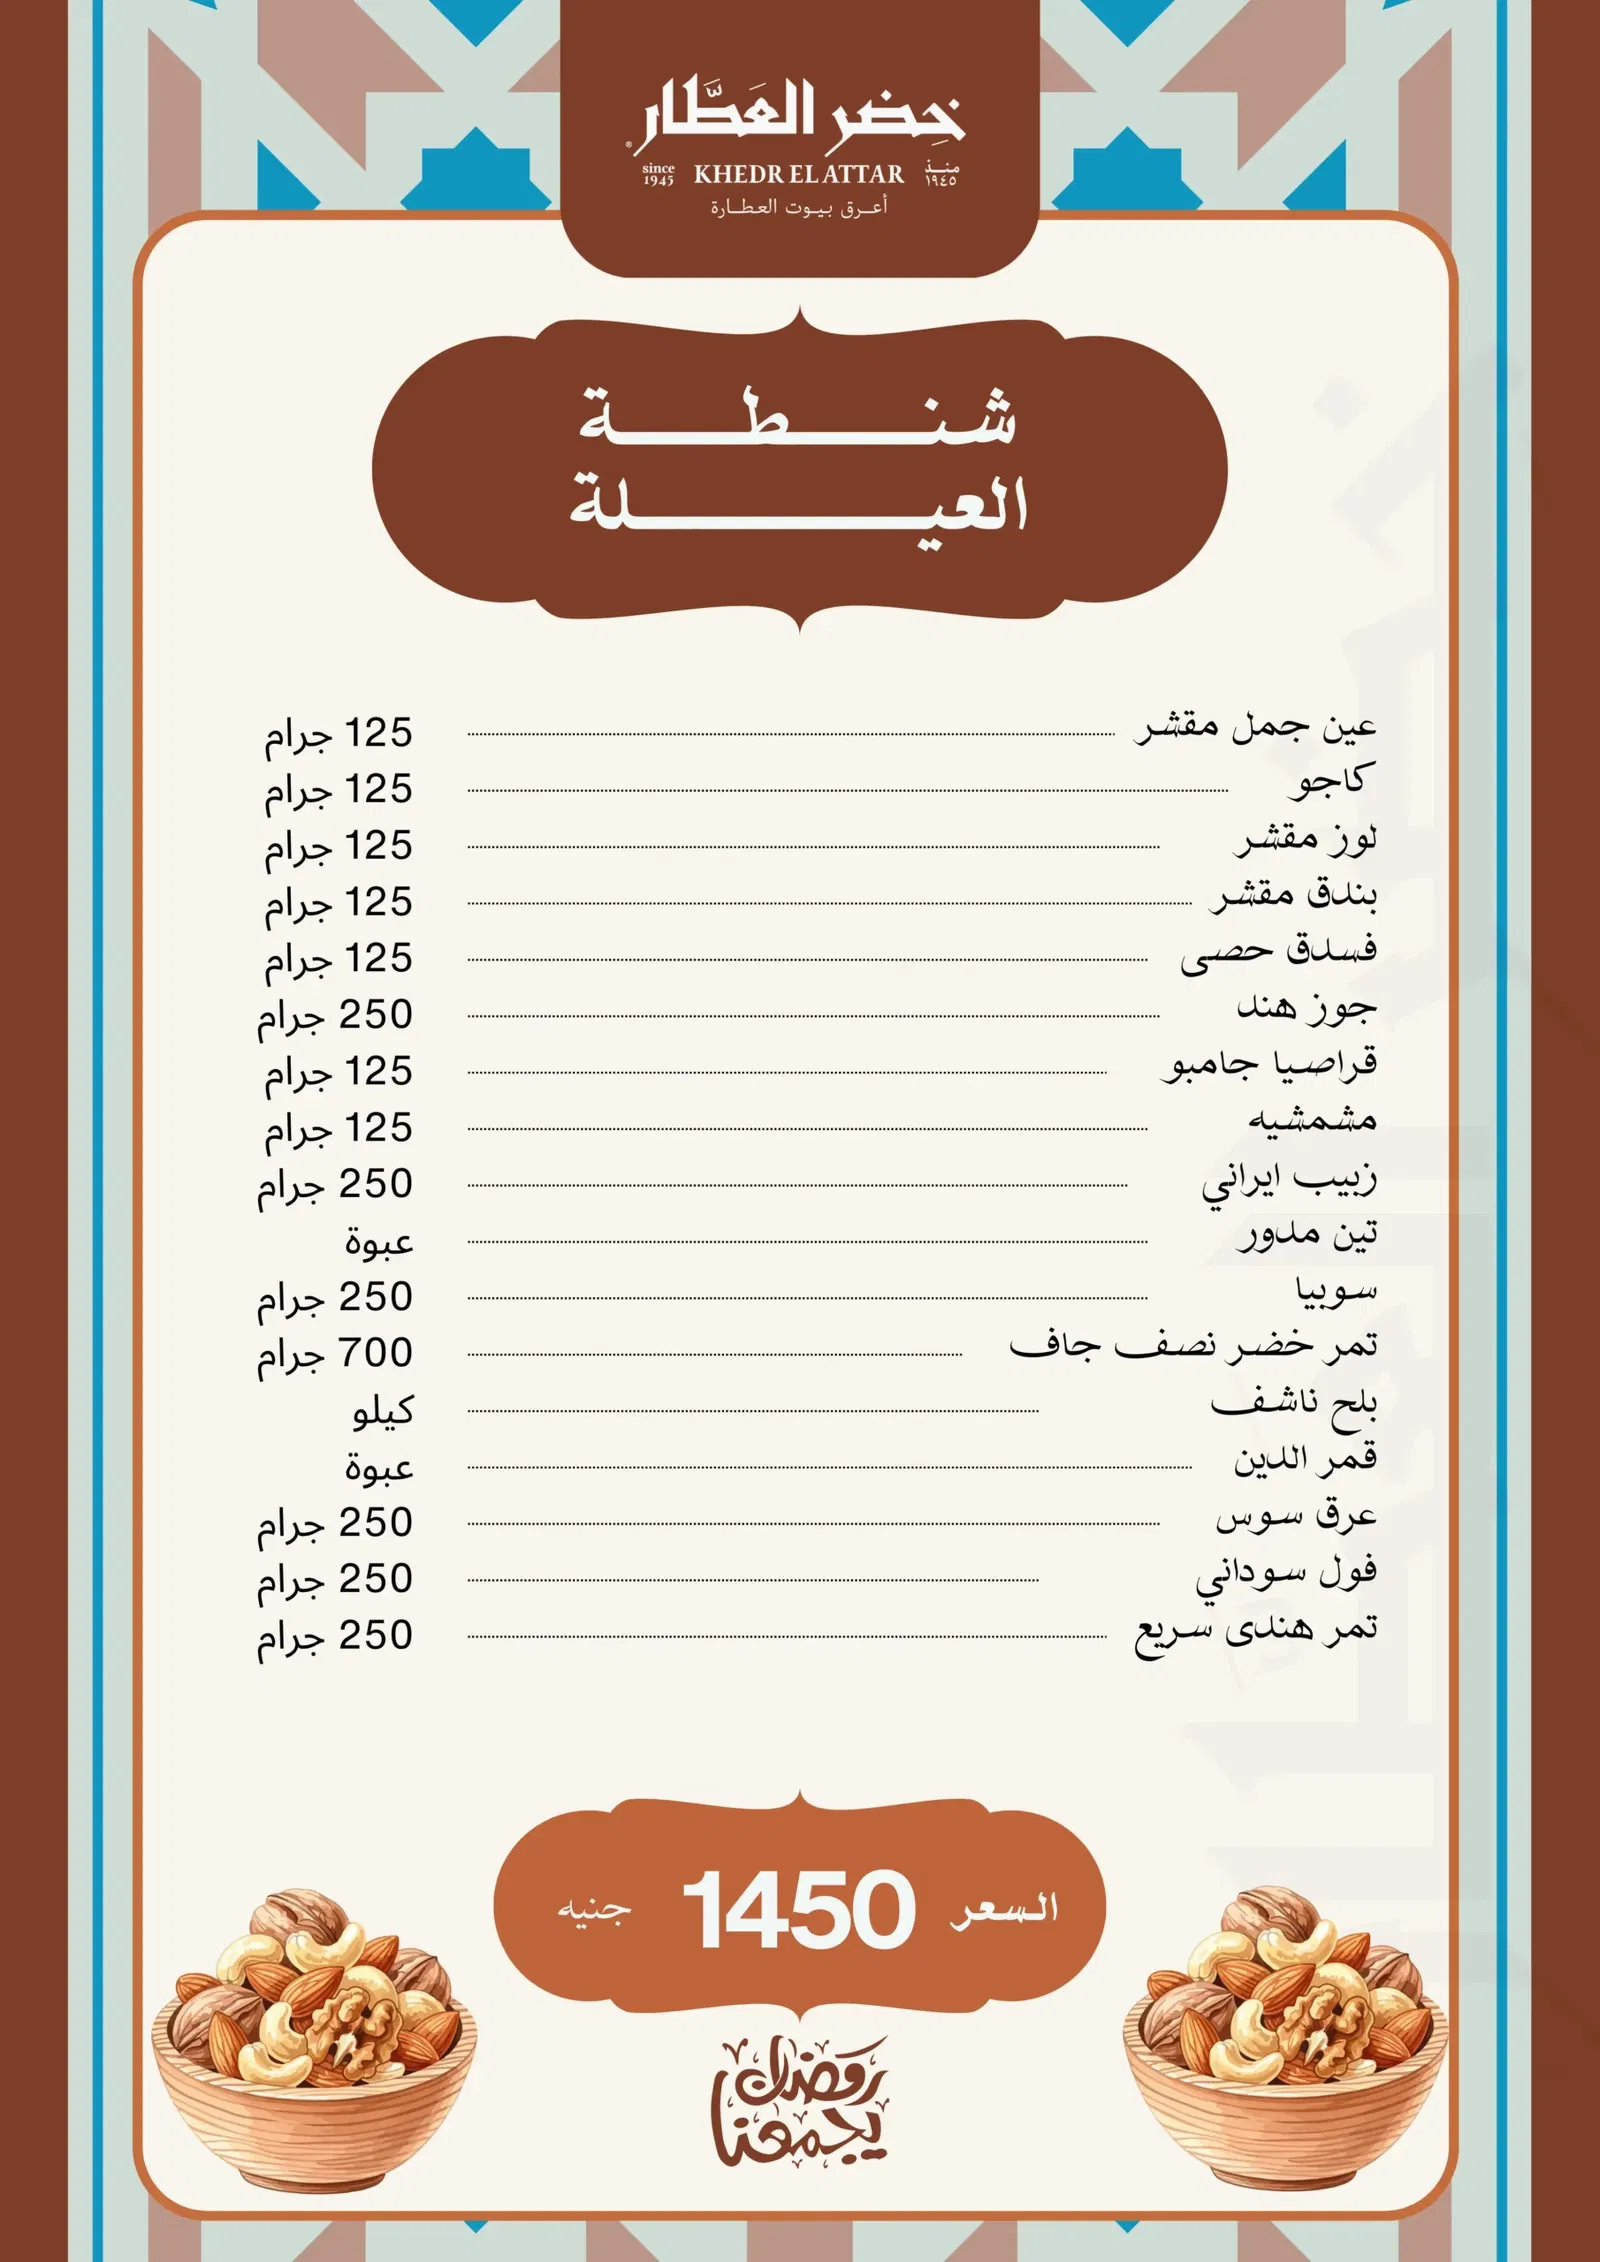 خضر العطار
since 1945 KHEDR EL ATTAR منذ ١٩٤٥
أعرق بيوت العطارة
شنطة
العيلة
عين جمل مقشر 125 جرام
كاجو 125 جرام
لوز مقشر 125 جرام
بندق مقشر 125 جرام
فسدق حصى 125 جرام
جوز هند 250 جرام
قراصيا جامبو 125 جرام
مشمشيه 125 جرام
زبيب ايراني 250 جرام
تين مدور عبوة
سوبيا 250 جرام
تمر خضر نصف جاف 700 جرام
بلح ناشف كيلو
قمر الدين عبوة
عرق سوس 250 جرام
فول سوداني 250 جرام
تمر هندى سريع 250 جرام
السعر 1450 جنيه
رمضان
يجمعنا